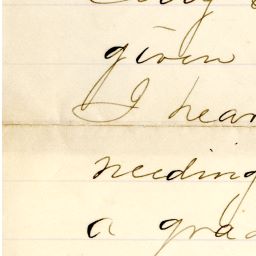 given
I hear
needing
a gra